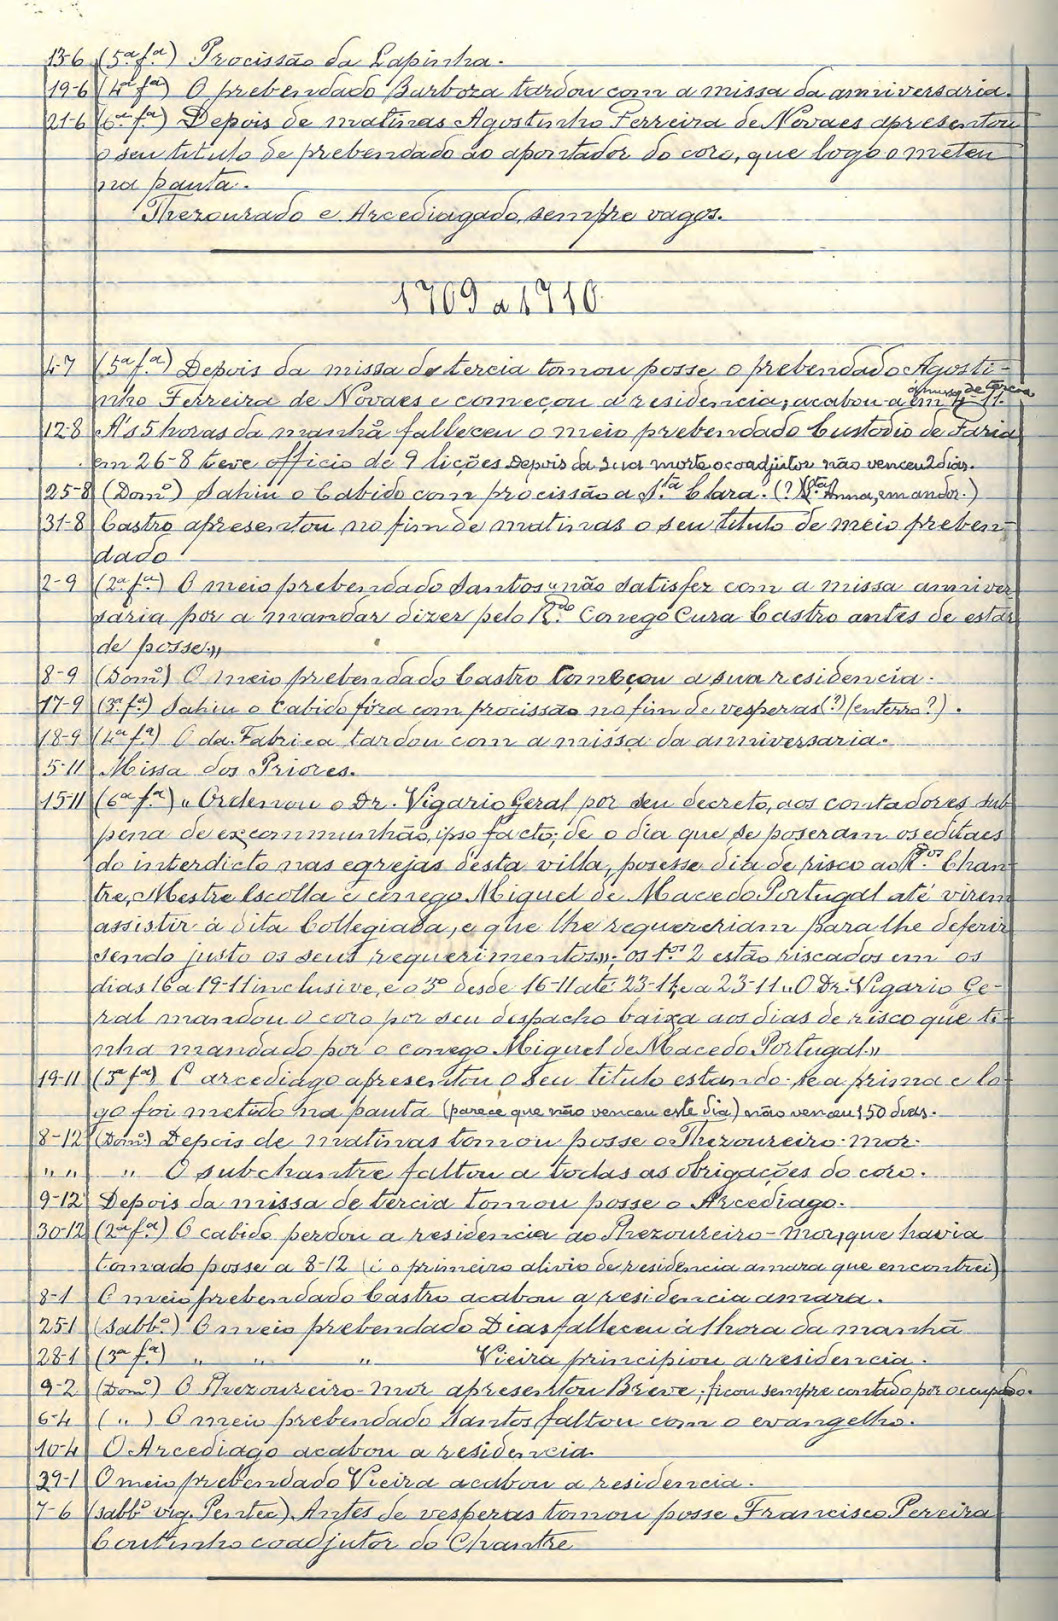 13-6 (5ª fª) Procissão da Lapinha.
19-6 (4ª fª) O prebendado Barboza tardou com a missa da anniversaria.
21-6 (6ª fª) Depois de matinas Agostinho Ferreira de Novaes apresentou
o seu titulo de prebendado ao apontador do coro, que logo o meteu
na pauta.
Thezourado e Arcediagado, sempre vagos.
1709 a 1710
4-7 (5ª fª) Depois da missa de tercia tomou posse o prebendado Agosti-
nho Ferreira de Novaes e começou a residencia; acabou-a em 4-11. á missa de tercia
12-8 Ás 5 horas da manhã falleceu o meio prebendado Custodio de Faria
em 26-8 teve officio de 9 lições Depois da sua morte o coadjutor não venceu 2 dias.
25-8 (Domº) Sahiu o Cabido com procissão a Stª Clara. (?) (Stª Anna, em andor.)
31-8 Castro apresentou no fim de matinas o seu titulo de meio preben-
dado
2-9 (2ª fª) O meio prebendado Santos "não satisfez com a missa anniver-
saria por a mandar dizer pelo Rdo Conego Cura Castro antes de estar
de posse."
8-9 (Domº) O meio prebendado Castro começou a sua residencia.
17-9 (3ª fª) Sahiu o Cabido fóra com procissão no fim de vesperas (?) (enterro?).
18-9 (4ª fª) O da Fabrica tardou com a missa da anniversaria.
5-11 Missa dos Priores.
15-11 (6ª fª) "Ordenou o Dr. Vigario Geral por seu decreto, aos contadores sub
pena de excommunhão, ipso facto; de o dia que se poseram os editaes
do interdicto nas egrejas d'esta villa, posesse dia de risco ao Rdos Chan-
tre, Mestre Escolla e conego Miguel de Macedo Portugal até virem
assistir á dita Collegiada, e que lhe requereriam para lhe deferir
sendo justo os seus requerimentos"; os 1os 2 estão riscados em os
dias 16 a 19-11 inclusive, e o 3º desde 16-11 até 23-11, e a 23-11 "O Dr. Vigario Ge-
ral mandou o coro por seu despacho baixa aos dias de risco que ti-
nha mandado por o conego Miguel de Macedo Portugal"
19-11 (3ª fª) O arcediago apresentou o seu titulo estando-se a prima e lo-
go foi metido na pauta (parece que não venceu este dia) não venceu 150 dias.
8-12 (Domº) Depois de matinas tomou posse o Thezoureiro-mor.
" " " O subchantre faltou a todas as obrigações do coro.
9-12 Depois da missa de tercia tomou posse o Arcediago.
30-12 (2ª fª) O cabido perdou a residencia ao Thezoureiro-mor, que havia
tomado posse a 8-12 (é o primeiro alivio de residencia amara que encontrei)
8-1 O meio prebendado Castro acabou a residencia amara.
25-1 (Sabbº) O meio prebendado Dias falleceu á 1 hora da manhã
28-1 (3ª fª) " " " Vieira principiou a residencia.
9-2 (Domº) O Thezoureiro-mor apresentou Breve; ficou sempre contado por occupado.
6-4 ( " ) O meio prebendado Santos faltou com o evangelho.
10-4 O Arcediago acabou a residencia.
29-1 O meio prebendado Vieira acabou a residencia.
7-6 (sabbº vig. Pentec). Antes de vesperas tomou posse Francisco Pereira
Coutinho coadjutor do Chantre